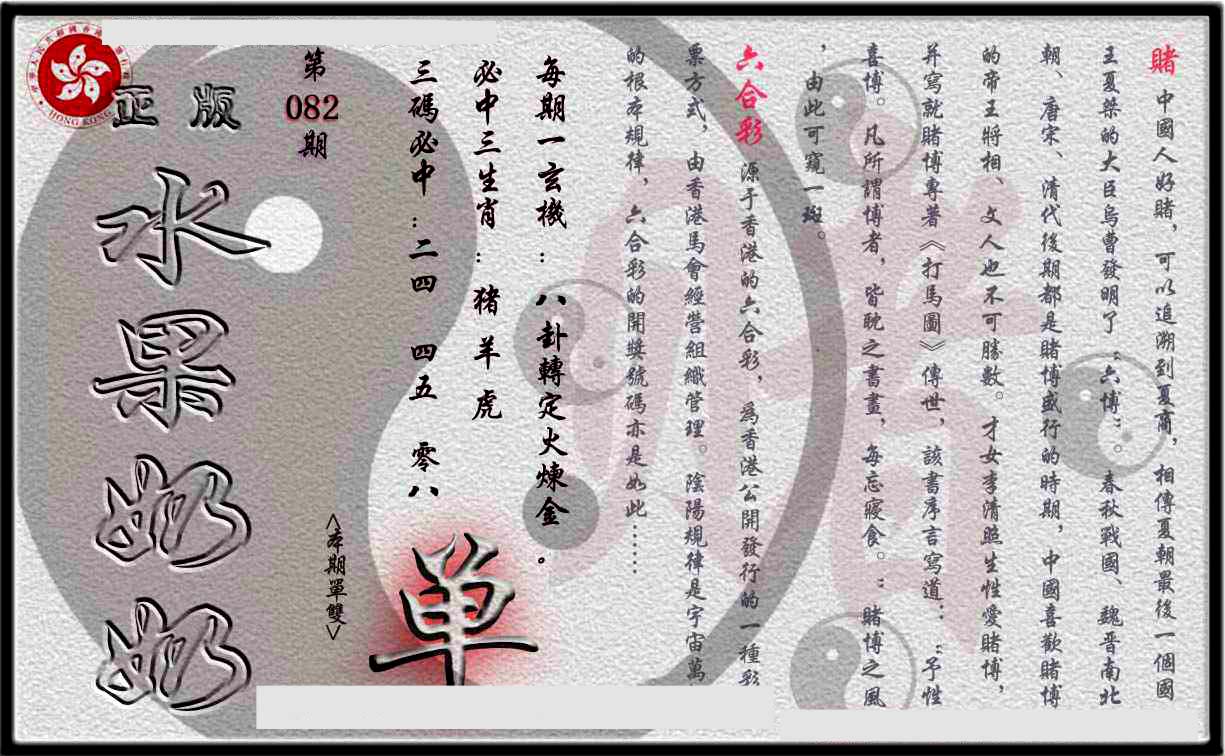 賭 中國人好賭，可以追溯到夏商，相傳夏朝最後一個國
王夏桀的大臣烏曹發明了“六博”。春秋戰國、魏晋南北
朝、唐宋、清代後期都是賭博盛行的時期，中國喜歡賭博
的帝王將相、文人也不可勝數。才女李清照生性愛賭博，
并寫就賭博專著《打馬圖》傳世，該書序言寫道：“予性
喜博。凡所謂博者，皆耽之書畫，每忘寢食。”賭博之風
，由此可窺一斑。
六合彩 源于香港的六合彩，爲香港公開發行的一種彩
票方式，由香港馬會經營組織管理。陰陽規律是宇宙萬
的根本規律，六合彩的開獎號碼亦是如此……
每期一玄機：八卦轉定火煉金。
必中三生肖：猪羊虎
三碼必中：二四 四五 零八
單
<本期單雙>
第
082
期
正版
水果奶奶
HONG KONG